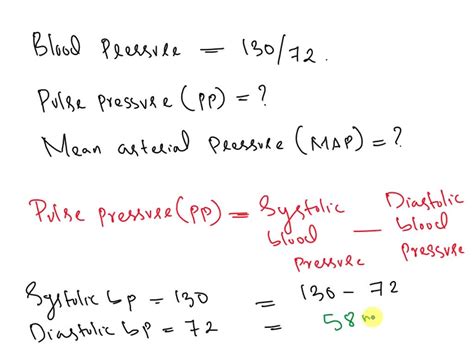 Blood Pressure = 130/72.
Pulse pressure (PP) = ?
Mean arterial Pressure (MAP) = ?
Pulse pressure (PP) = Systolic blood pressure — Diastolic blood pressure
Systolic bp = 130 = 130 - 72
Diastolic bp = 72 = 58